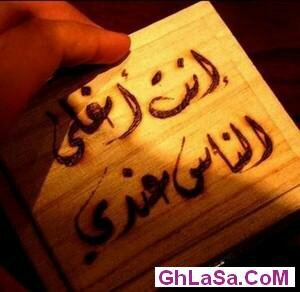 إنت أغلى
الناس عندي
GhLaSa.CoM